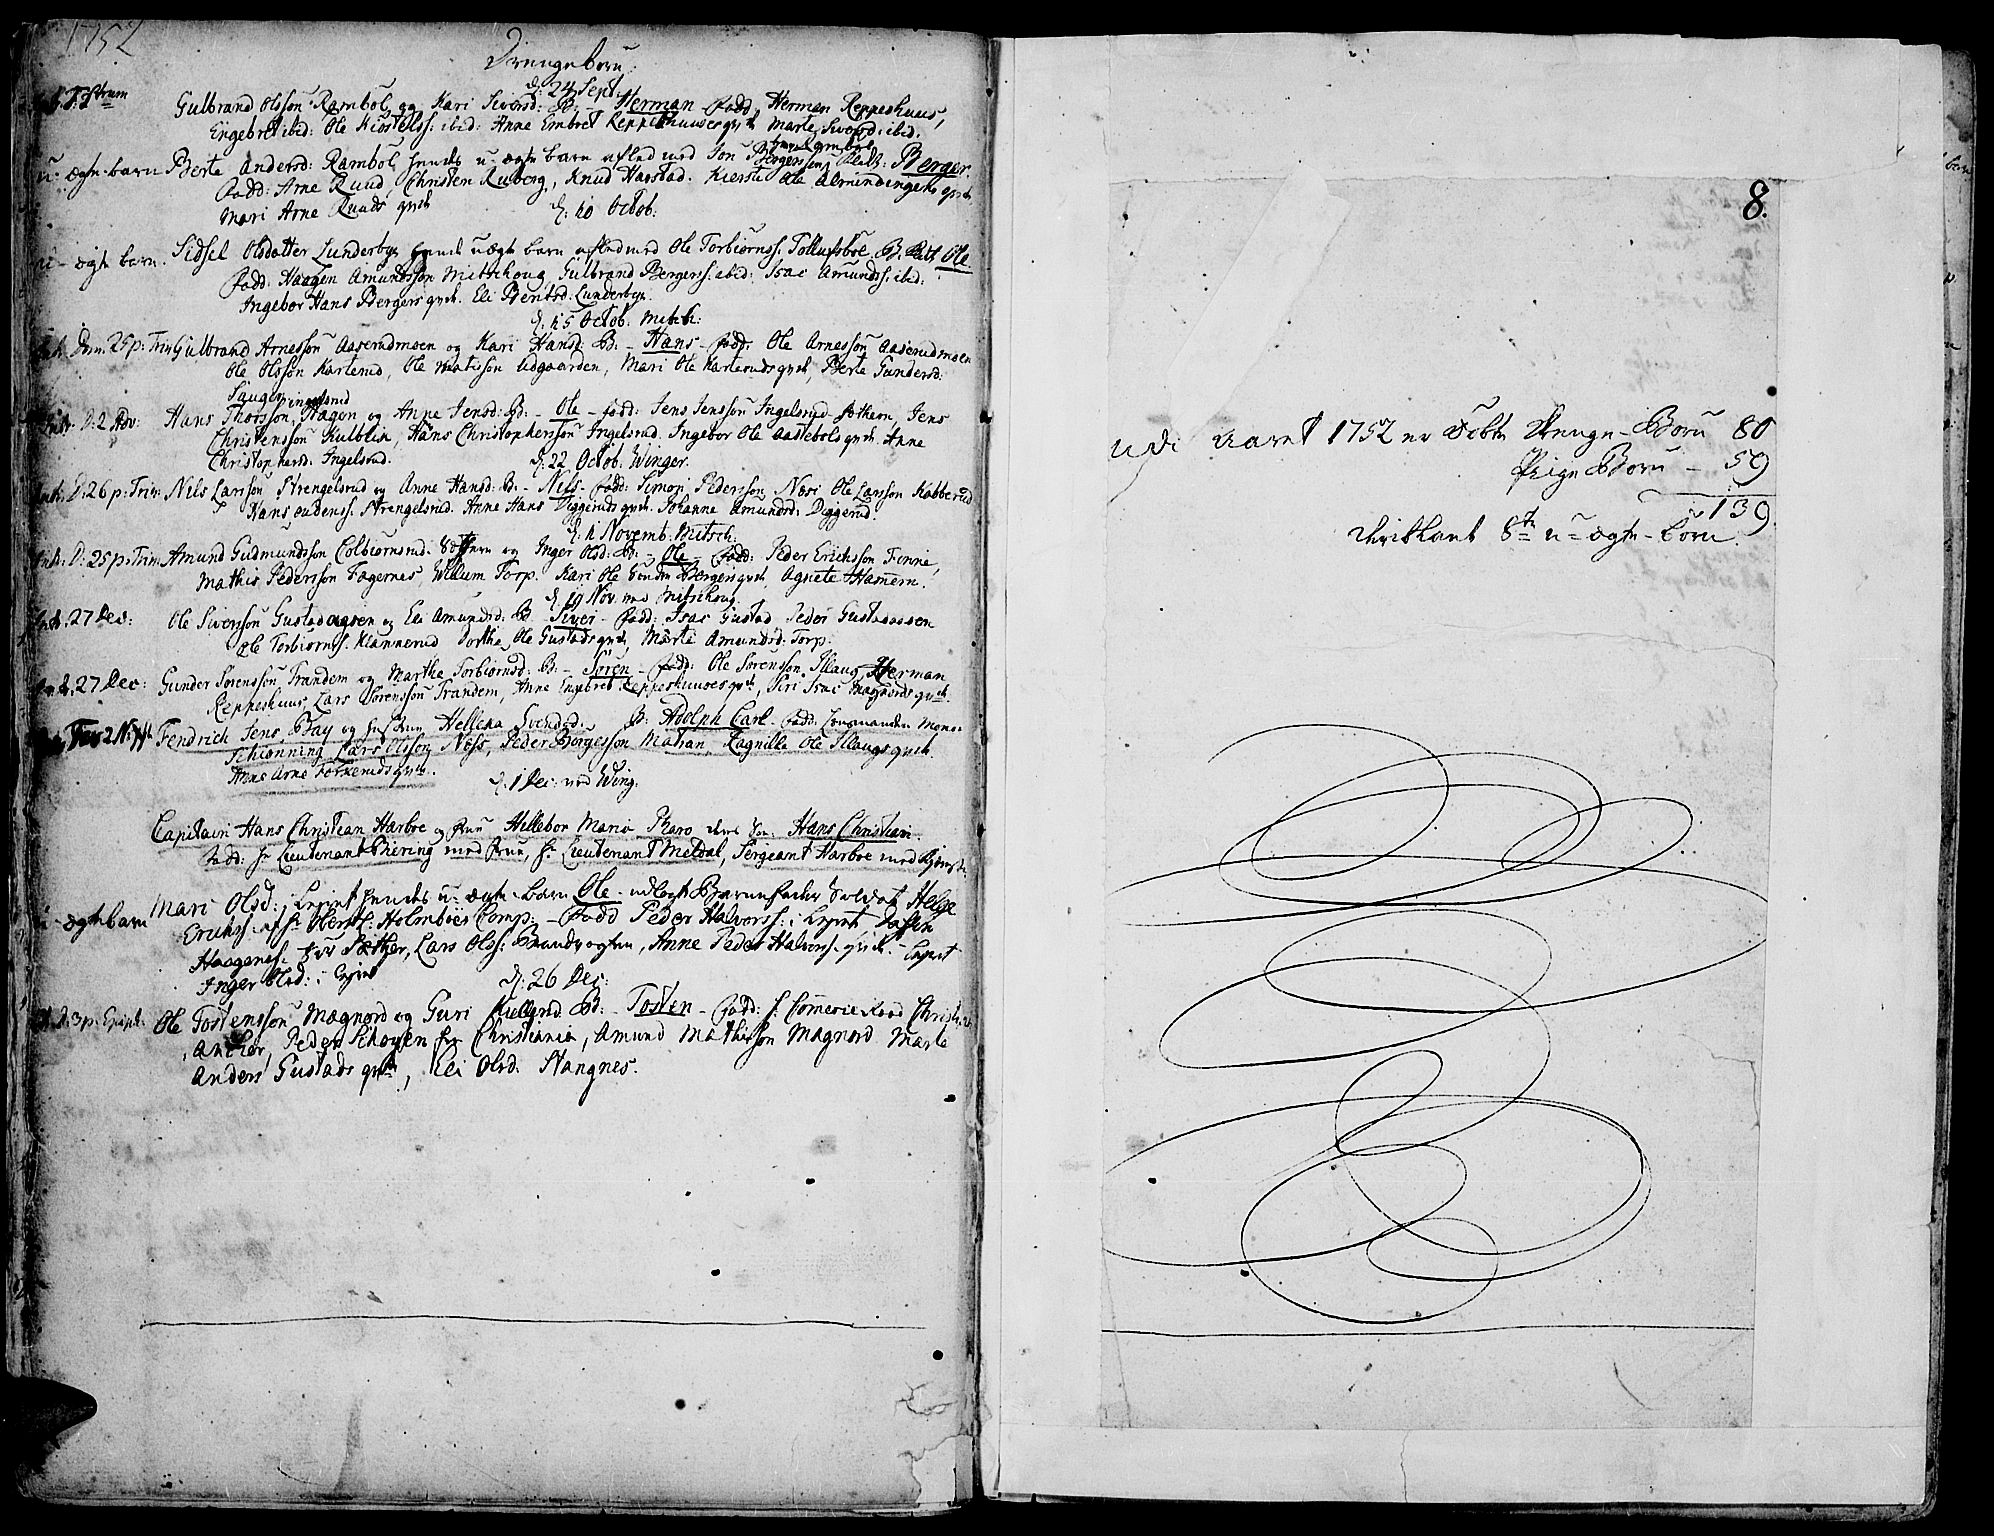 1752
Drengebørn
d: 24 Sept.
Gulbrand Olsson Rambøl og Kari Siversd: B: - Herman - fadd: Herman Reppeshuus,
Engebret ibid: Ole Kiøstelss: ibid: Anne Embret Reppeshuuses qvde Marte Sversd: ibid.
u-ægte barn Berte Andersd: Rambøl hendes u-ægte barn aflet med Jon Bergersson Kaldt: Berger.
fadd: Arne Ruud, Christen Ruberg, Knud Harstad. Kiersti Ole Almindingens qvde
Mari Arne Ruuds qvde
d: 10 Octob:
u-ægte barn. Sidsel Olsdatter Lunderbye hendes uægte barn aflet med Ole Torbiørnss. Tollufsboe, B. Kalt Ole.
fadd: Haagen Amundsson Mitschoug Gulbrand Bergerss. ibid: Isac Amundss: ibid:
Ingebor Hans Bergers qvde. Eli Bentsd: Lunderbye.
d: 15 Octob. Mitsk:
Intr. Dom. 25 p: Trin Gulbrand Arnesson Aaserudmoen og Kari Hansd: B: - Hans - fadd: Ole Arnesson Aaserudmoen
Ole Olsson Karterud, Ole Matisson Udgaarden, Mari Ole Karteruds qvde, Berte Gundersd:
Saugen
Intr. D: 2 Adv: Hans Thorsson, Hagen og Anne Jensd: B: - Ole - fadd: Jens Jensson Ingelsrud Jens
Christensson Kulblik, Hans Christophersson Ingelsrud. Ingebor Ole Aastebøls qvde. Anne
Christophersd: Ingelsrud.
d: 22 Octob. Winger.
Intr. D: 26 p: Trin: Nils Larsson Strengelsrud og Anne Hansd: B: - Nils - fadd: Simon Pedersson, Nøsi Ole Larsson Kabberud
Hans Eudenss. Strengelsrud. Anne Hans Diggeruds qvde. Johanne Amundsd: Diggerud.
d: 1 Novemb. Mitsch:
Intr. D: 25 p: Trin: Amund Gudmundsson Colbiørnsrud. og Inger Olsd: B: - Ole - fadd: Peder Ericksson Finne,
Mathis Pedersson Fagernes Willum Torp. Kari Ole Bergers qvde, Agnete Hamern.
d: 19 Nov. ved Mitschoug.
Intr. 27 Dec: Ole Siversson Gustadagsen og Eli Amundsd. B. - Siver - fadd: Isac Gustad Peder Gustadassen
Ole Torbiørnss. Klannerud Dorthe Ole Gustads qvde, Marte Amundsd. Torp.
Intr. 27 Dec: Gunder Sørensson Trandem og Marthe Torbiørnsd: B: - Søren - fadd: Ole Sørensson Illaug, Herman
Reppeshuus, Lars Sørensson Trandem, Anne Engebret Reppeshuuses qvde, Siri Isac Magnords qvde.
Fendrich Jens Bay og hustrue Hellena Svendsd. B: Adolph Carl - fadd: Monsr
Schiønning Lars Olsson Ness, Peder Børgesson Matran, Ragnille Ole Illaugs qvde.
Anne Arne Torkeruds qvde.
d: 1 Dec: ved Wing.
Capitain Hans Christian Harboe og frue Hellebor Maria Pharo deres Søn: Hans Christian.
fadd: hr Lieutenant Bhiering med frue, hr. Lieutenant Meldal, Sergeant Harboe med
u-ægte barn Mari Olsd: i Leiret hendes u-ægte barn Ole - udlagt Barnefader Soldat Helge
Erichss. af hr. Oberstl: Holmboes Comp: - fadd Peder Halvorss: i Leyret,
Haagens. Sæther, Lars Olss: Brandvogten, Anne Peder Halvorss. qvde - Leyret
Inger Olsd: i Leyret
d: 26 Dec:
D. 3 p: Epiph: Ole Tostensson Magnord og Guri Kiellsd. B: - Tosten - fadd: hr Commerce Raad Christian
Ancher, Peder Schøyen fr Christiania, Amund Mathisson Magnord Marte
Anders Gustads qvde, Eli Olsd. Stangnes.
8.
udi Aaret 1752 er døbte Drenge-Børn 80
Pige Børn - 59
139
Deriblant 8te u-ægte-børn.